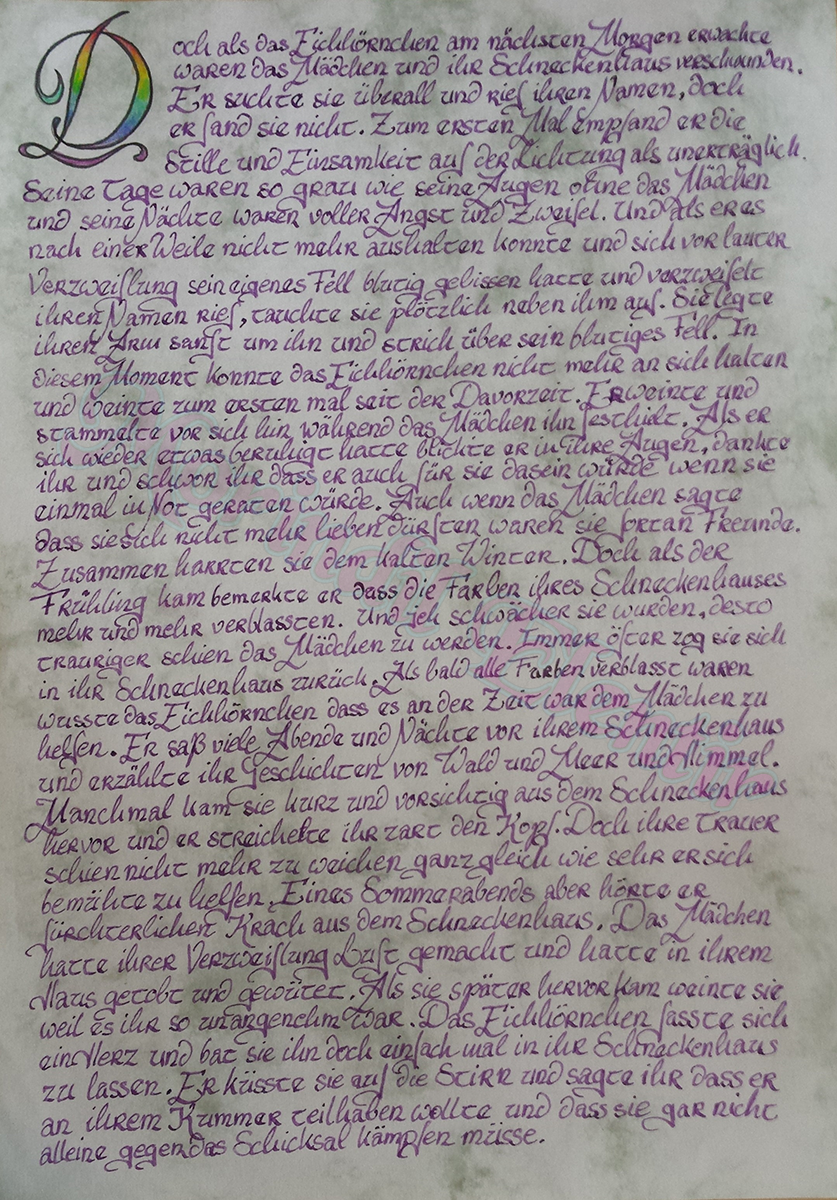 Doch als das Eichhörnchen am nächsten Morgen erwachte
waren das Mädchen und ihr Schneckenhaus verschwunden.
Er suchte sie überall und rief ihren Namen, doch
er fand sie nicht. Zum ersten Mal empfand er die
Stille und Einsamkeit auf der Lichtung als unerträglich.
Seine Tage waren so grau wie seine Augen ohne das Mädchen
und seine Nächte waren voller Angst und Zweifel. Und als er es
nach einer Weile nicht mehr aushalten konnte und sich vor lauter
Verzweiflung sein eigenes Fell blutig gebissen hatte und verzweifelt
ihren Namen rief, tauchte sie plötzlich neben ihm auf. Sie legte
ihren Arm sanft um ihn und strich über sein blutiges Fell. In
diesem Moment konnte das Eichhörnchen nicht mehr an sich halten
und weinte zum ersten mal seit der Davorzeit. Er weinte und
stammelte vor sich hin während das Mädchen ihn festhielt. Als er
sich wieder etwas beruhigt hatte blickte er in ihre Augen, dankte
ihr und schwor ihr dass er auch für sie dasein würde wenn sie
einmal in Not geraten würde. Auch wenn das Mädchen sagte
dass sie sich nicht mehr lieben dürften waren sie fortan Freunde.
Zusammen harrten sie dem kalten Winter. Doch als der
Frühling kam bemerkte er dass die Farben ihres Schneckenhauses
mehr und mehr verblassten. Und jeh schwächer sie wurden, desto
trauriger schien das Mädchen zu werden. Immer öfter zog sie sich
in ihr Schneckenhaus zurück. Als bald alle Farben verblasst waren
wusste das Eichhörnchen dass es an der Zeit war dem Mädchen zu
helfen. Er saß viele Abende und Nächte vor ihrem Schneckenhaus
und erzählte ihr Geschichten von Wald und Meer und Himmel.
Manchmal kam sie kurz und vorsichtig aus dem Schneckenhaus
hervor und er streichelte ihr zart den Kopf. Doch ihre Trauer
schien nicht mehr zu weichen ganz gleich wie sehr er sich
bemühte zu helfen. Eines Sommerabends aber hörte er
fürchterlichen Krach aus dem Schneckenhaus. Das Mädchen
hatte ihrer Verzweiflung Luft gemacht und hatte in ihrem
Haus getobt und gewütet. Als sie später hervor kam weinte sie
weil es ihr so unangenehm war. Das Eichhörnchen fasste sich
ein Herz und bat sie ihn doch einfach mal in ihr Schneckenhaus
zu lassen. Er küsste sie auf die Stirn und sagte ihr dass er
an ihrem Kummer teilhaben wollte und dass sie gar nicht
alleine gegen das Schicksal kämpfen müsse.